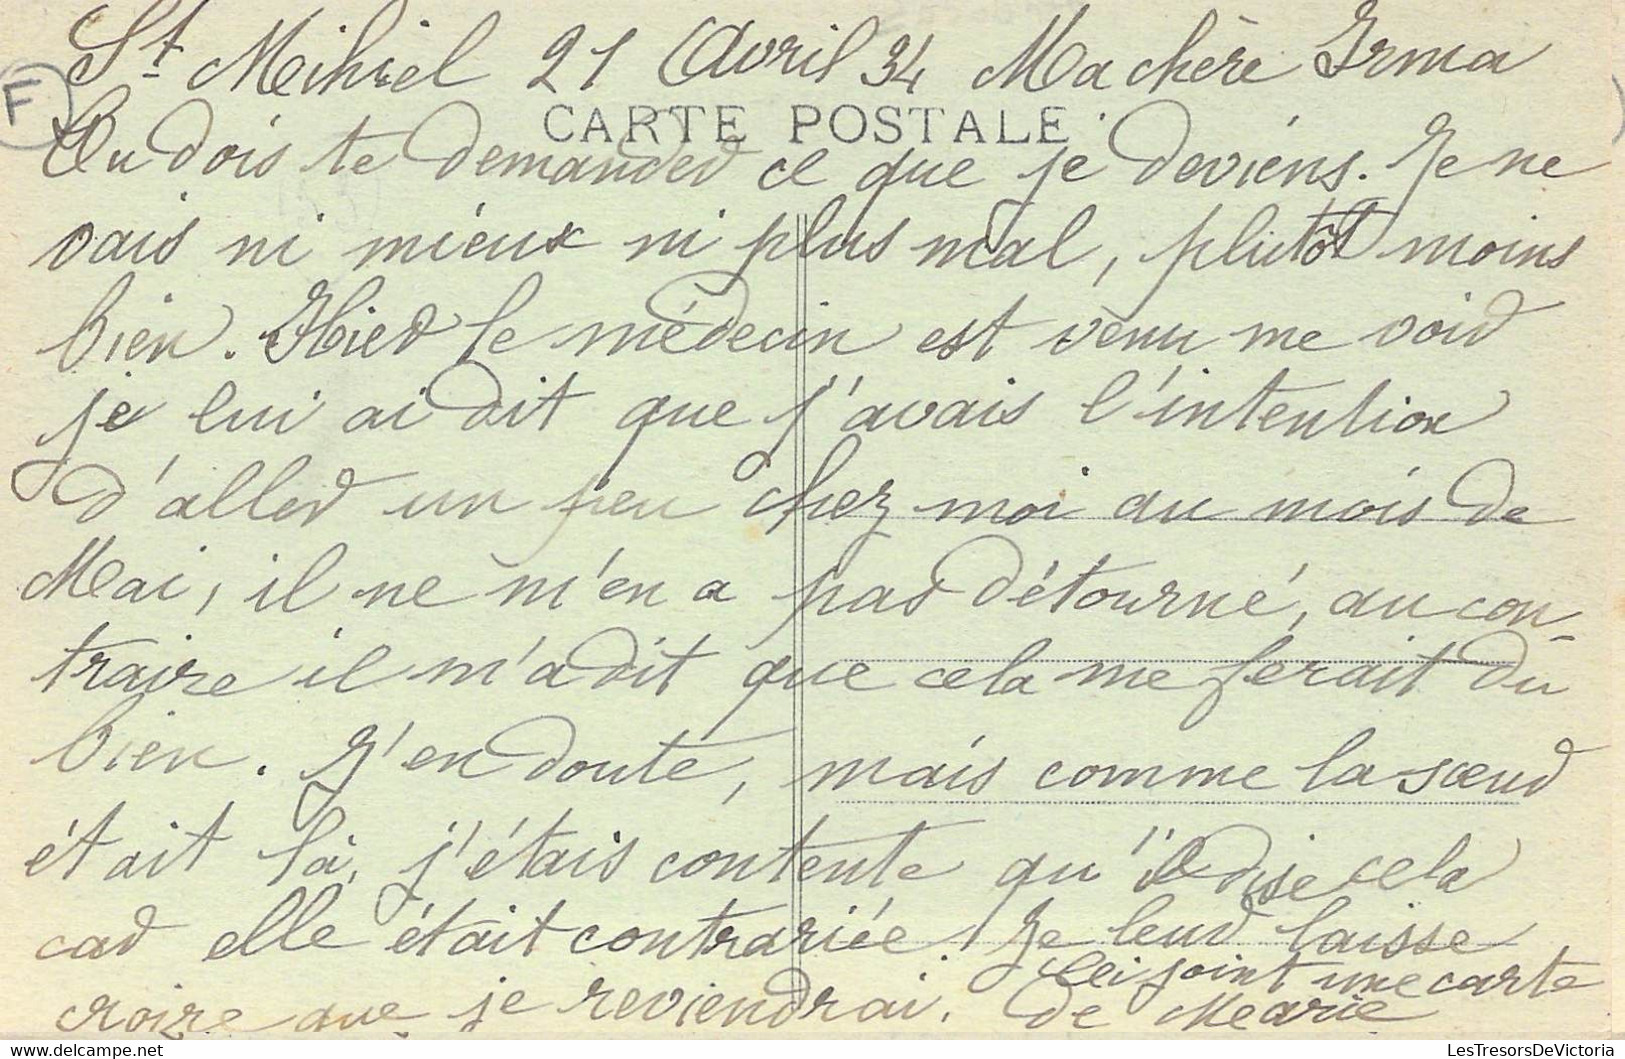 St Mihiel 21 Avril 34 Ma chère Irma
F
CARTE POSTALE
Tu dois te demander ce que je deviens. Je ne
vais ni mieux ni plus mal, plutôt moins
bien. Hier le médecin est venu me voir
je lui ai dit que j'avais l'intention
d'aller un peu chez moi au mois de
Mai, il ne m'en a pas détourné, au con-
traire il m'a dit que cela me ferait du
bien. J'en doute, mais comme la sœur
était là, j'étais contente qu'il dise cela
car elle était contrariée. Je leur laisse
croire que je reviendrai. Ci joint une carte
de Marie
LesTresorsDeVictoria